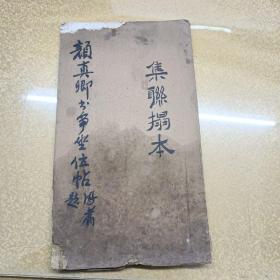 集聯搨本
顏真卿書爭坐位帖
題